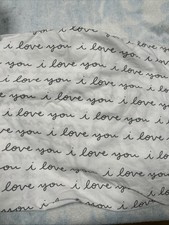 you i love you
i love you i love you
i love you i love you i
i love you i love you i
i love you i love you
i love you i love you
i love you i love you
i love you i love you
love you i love you
i love you i love you
love you i love you i
love you i love you
you i love you i love